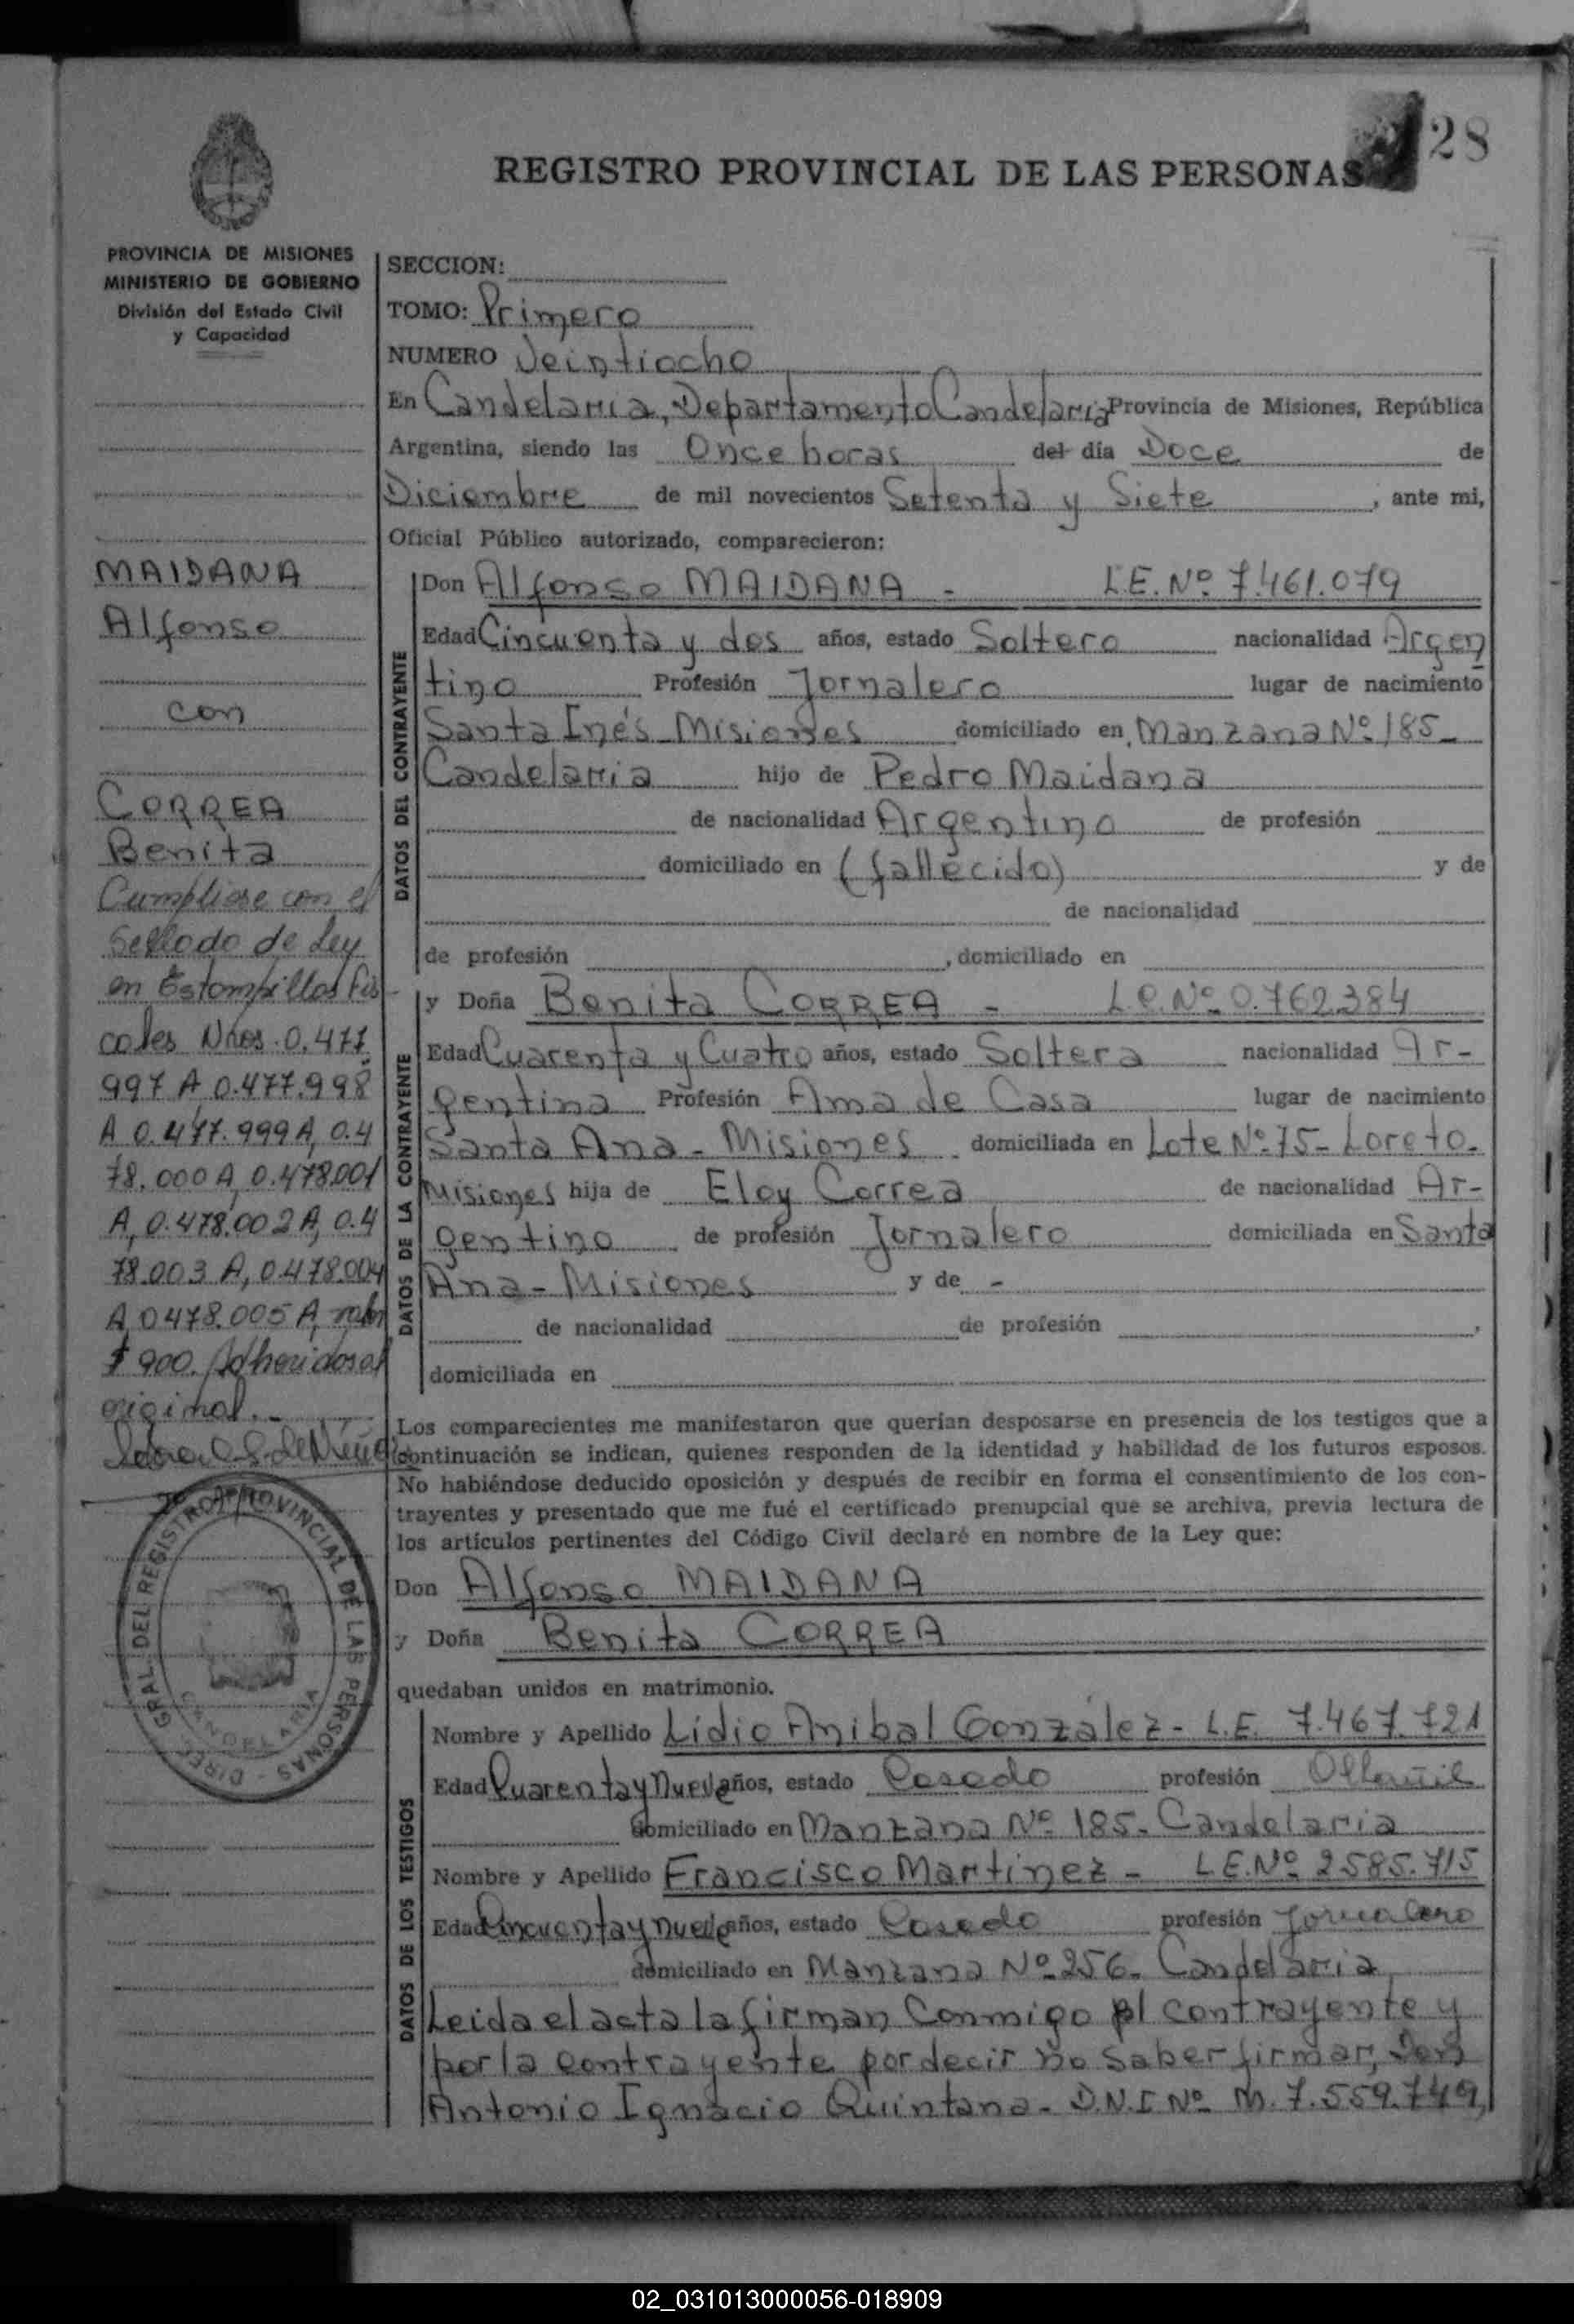 28
REGISTRO PROVINCIAL DE LAS PERSONAS
PROVINCIA DE MISIONES
MINISTERIO DE GOBIERNO
División del Estado Civil
y Capacidad
MAIDANA
Alfonso
con
CORREA
Benita
Cumpliose con el
Sellado de Ley
en Estampillas Fis
cales Nros. 0.477.
997 A 0.477.998
A 0.477.999 A, 0.4
78.000 A, 0.478.001
A, 0.478.002 A, 0.4
78.003 A, 0.478.004
A 0478.005 A, valor
$ 900. Adheridos al
original.
GRAL. DEL REGISTRO PROVINCIAL DE LAS PERSONAS - DIREC.
CANDELARIA
SECCION:
TOMO: Primero
NUMERO Veintiocho
En Candelaria, Departamento Candelaria Provincia de Misiones, República
Argentina, siendo las Once horas del día Doce de
Diciembre de mil novecientos Setenta y Siete, ante mi,
Oficial Público autorizado, comparecieron:
DATOS DEL CONTRAYENTE
Don Alfonso MAIDANA - L.E. Nº 7.461.079
Edad Cincuenta y dos años, estado Soltero nacionalidad Argen
tino Profesión Jornalero lugar de nacimiento
Santa Inés Misiones domiciliado en Manzana Nº 185-
Candelaria hijo de Pedro Maidana
de nacionalidad Argentino de profesión
domiciliado en (fallecido) y de
de nacionalidad
de profesión , domiciliado en
DATOS DE LA CONTRAYENTE
y Doña Benita CORREA - L.C. Nº 0.762.384
Edad Cuarenta y Cuatro años, estado Soltera nacionalidad Ar-
gentina Profesión Ama de Casa lugar de nacimiento
Santa Ana - Misiones domiciliada en Lote Nº 75 - Loreto.
Misiones hija de Eloy Correa de nacionalidad Ar-
gentino de profesión Jornalero domiciliada en Santa
Ana - Misiones y de -
de nacionalidad de profesión ,
domiciliada en
Los comparecientes me manifestaron que querían desposarse en presencia de los testigos que a
continuación se indican, quienes responden de la identidad y habilidad de los futuros esposos.
No habiéndose deducido oposición y después de recibir en forma el consentimiento de los con-
trayentes y presentado que me fué el certificado prenupcial que se archiva, previa lectura de
los artículos pertinentes del Código Civil declaré en nombre de la Ley que:
Don Alfonso MAIDANA
y Doña Benita CORREA
quedaban unidos en matrimonio.
DATOS DE LOS TESTIGOS
Nombre y Apellido Lidio Anibal González - L.E. 7.467.721
Edad Cuarenta y Nueve años, estado Casado profesión Albañil
domiciliado en Manzana Nº 185 - Candelaria
Nombre y Apellido Francisco Martinez - L.E. Nº 2585.715
Edad Cincuenta y nueve años, estado Casado profesión Jornalero
domiciliado en Manzana Nº 256 - Candelaria
Leida el acta la firman Conmigo el contrayente y
por la contrayente por decir no saber firmar, Don
Antonio Ignacio Quintana - D.N.I Nº M. 7.559.749,
02_031013000056-018909